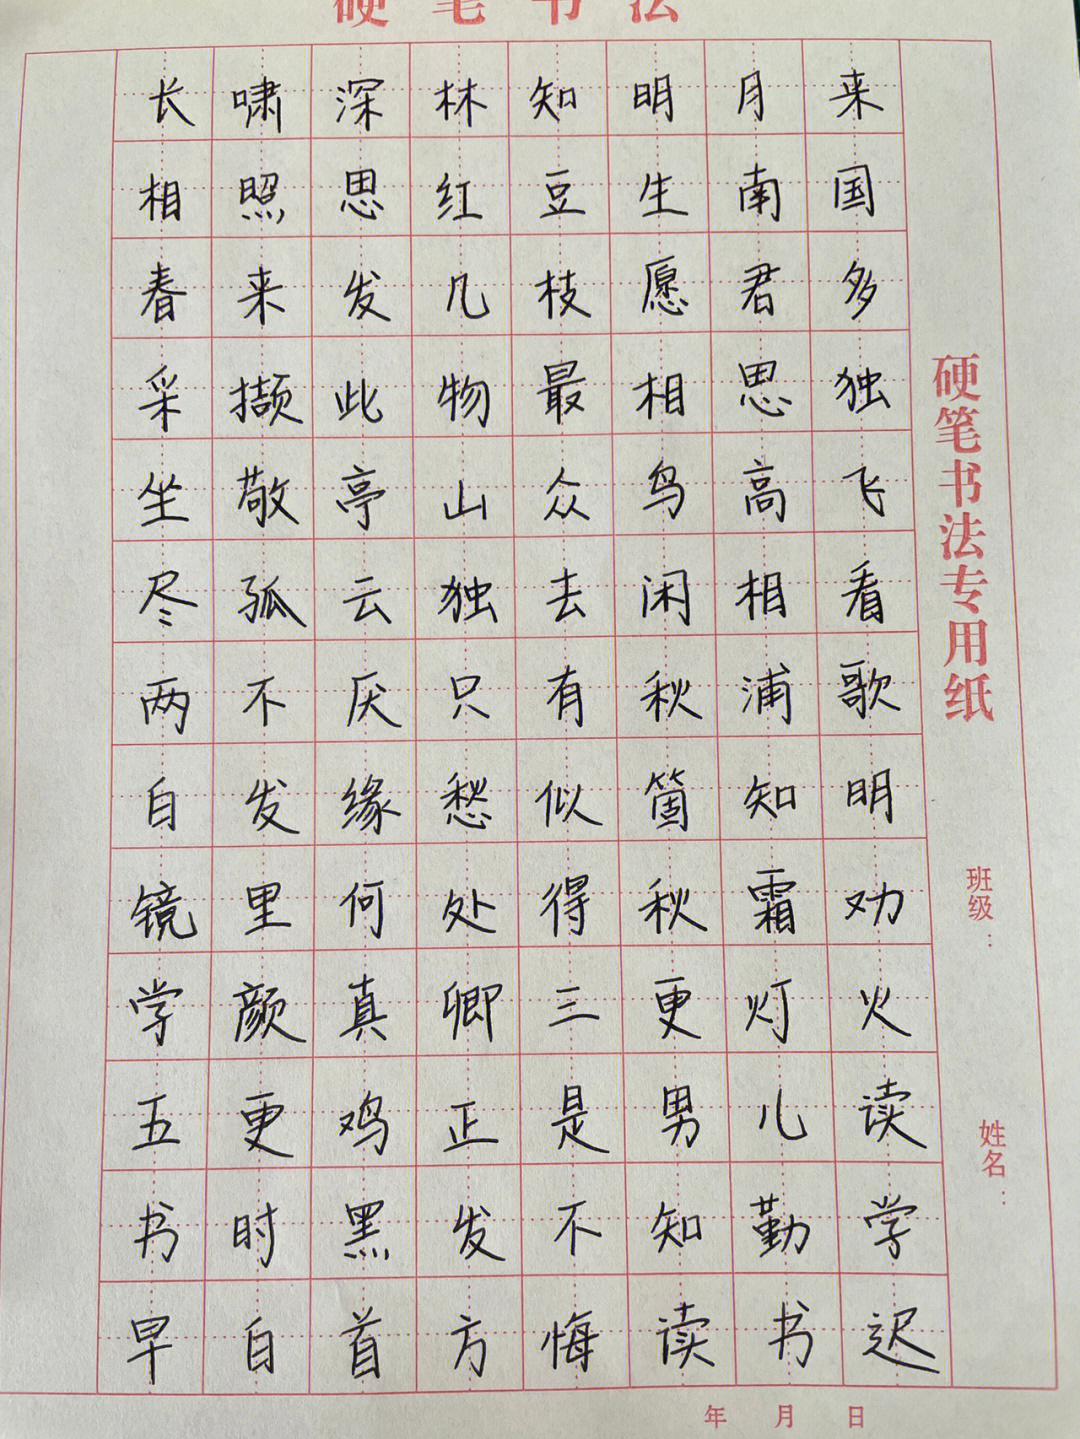 硬笔书法
长啸深林知明月来
相照思红豆生南国
春来发几枝愿君多
采撷此物最相思独
坐敬亭山众鸟高飞
尽孤云独去闲相看
两不厌只有秋浦歌
白发缘愁似箇知明
镜里何处得秋霜劝
学颜真卿三更灯火
五更鸡正是男儿读
书时黑发不知勤学
早白首方悔读书迟
硬笔书法专用纸
班级：
姓名：
年 月 日